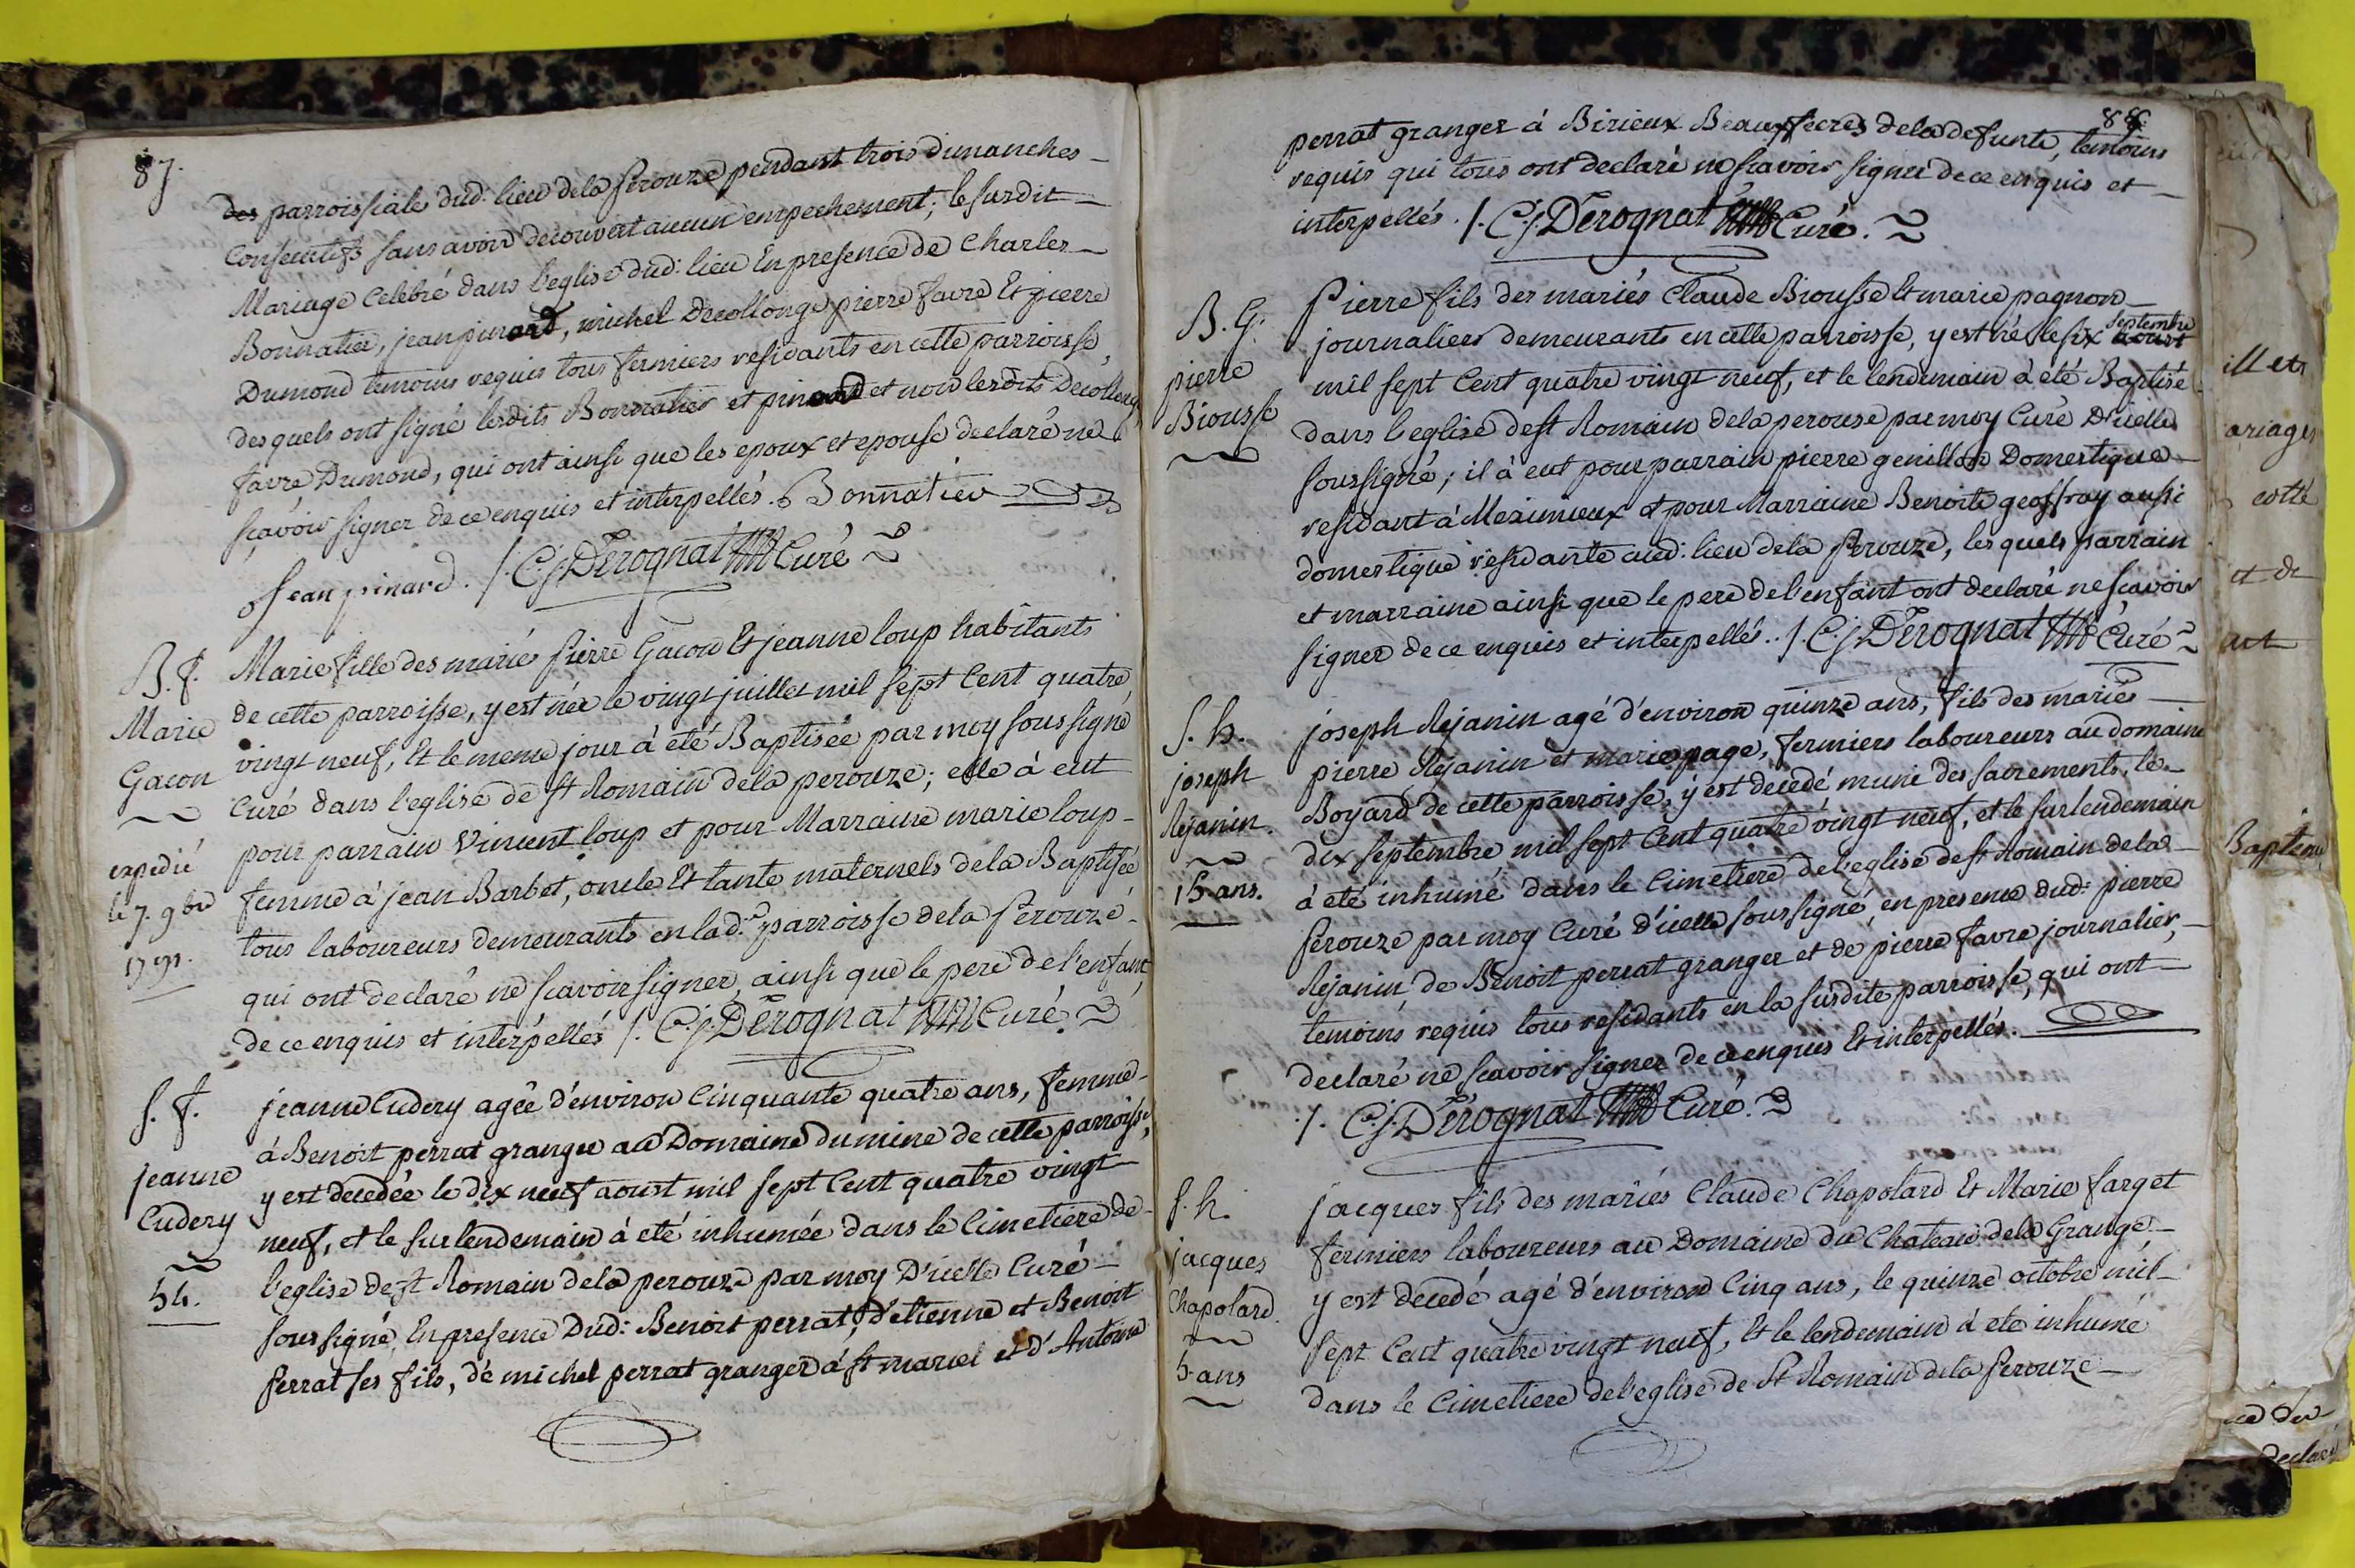 87.
des parroissiale dud: lieu dela Perouze pendant trois dimanches
Consecutifs sans avoir decouvert aucun empechement; le susdit
Mariage Celebré dans l'eglise dud: lieu En presence de Charles
Bonnatier, jean pinard, michel Decollonge pierre favre Et pierre
Dumond temoins requis tous fermiers residants en cette parroisse,
desquels ont signé lesdits Bonnatier et pinard et non lesdits Decollonge
favre Dumond, qui ont ainsi que les epoux et epouse declaré ne
sçavoir signer de ce enquis et interpellés. Bonnatier
Jean pinard. /. C. j. Derognat Curé
B. f.
Marie
Gacon
expedié
le 7. 9bre
1791.
Marie fille des mariés Pierre Gacon Et jeanne loup habitants
de cette parroisse, y est née le vingt juillet mil sept Cent quatre
vingt neuf, Et le meme jour à eté Baptisée par moy soussigné
Curé dans l'eglise de St Romain dela perouze; elle à eut
pour parrain Vincent loup et pour Marraine marie loup
femme à jean Barbet, oncle Et tante maternels dela Baptisée
tous laboureurs demeurants en lad: parroisse dela Perouze
qui ont declaré ne scavoir signer, ainsi que le pere de l'enfant,
de ce enquis et interpellés /. C. j. Derognat Curé.
S. f.
jeanne
Cudery
54.
jeanne Cudery agée d'environ Cinquante quatre ans, femme
à Benoit perrat granger au Domaine dumine de cette parroisse,
y est decedée le dix neuf aoust mil sept Cent quatre vingt
neuf, et le surlendemain à eté inhumée dans le Cimetiere de
l'eglise de St Romain dela perouze par moy D'icelle Curé
soussigné, En presence Dud: Benoit perrat, d'etienne et Benoit
Perrat ses fils, dé michel perrat granger à St marcel et d'Antoine
88.
perrat granger à Birieux Beauxfreres dela defunte, temoins
requis qui tous ont declaré ne scavoir signer de ce enquis et
interpellés. /. C. j. Derognat Curé.
B. G.
pierre
Biousse
Pierre fils des mariés Claude Biousse Et marie pagnon
journaliers demeurants en cette parroisse, y est né le six aoust septembre
mil sept Cent quatre vingt neuf, et le lendemain à eté Baptisé
dans l'eglise de St Romain dela perouse par moy Curé D'icelle
soussigné; il à eut pour parrain pierre genillon Domestique
residant à Meximieux et pour Marraine Benoite geoffray aussi
domestique residante aud: lieu dela Perouze, les quels parrain
et marraine ainsi que le pere de l'enfant ont declaré ne scavoir
signer de ce enquis et interpellés.. /. C. j. Derognat Curé
S. h.
joseph
Rejanin.
15 ans.
joseph Rejanin agé d'environ quinze ans, fils des mariés
pierre Rejanin et marie page, fermiers laboureurs au domaine
Boyard de cette parroisse, y est decedé muni des sacrements, le
dix septembre mil sept Cent quatre vingt neuf, et le surlendemain
à eté inhumé dans le Cimetiere de l'eglise de St Romain dela
Perouze par moy Curé d'icelle soussigné, en presence dud: pierre
Rejanin, de Benoit perrat granger et de pierre favre journalier,
temoins requis tous residants en la susdite parroisse, qui ont
declaré ne scavoir signer de ce enquis Et interpellés.
./. C. j. Derognat Curé.
S. h.
jacques
Chapolard
5 ans
jacques fils des mariés Claude Chapolard Et Marie farget
fermiers laboureurs au Domaine du Chateau dela Grange,
y est decedé agé d'environ Cinq ans, le quinze octobre mil
sept Cent quatre vingt neuf, Et le lendemain à eté inhumé
dans le Cimetiere de l'eglise de St Romain dela Perouze
ill et
ariages
cotté
et de
Baptême
declaré